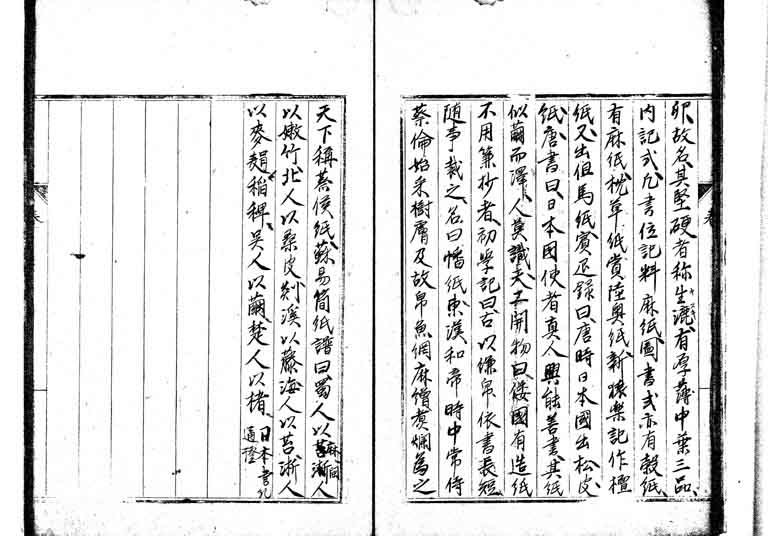 卵、故名、其堅硬者称生漉、有厚薄中葉三品、
内記式、凡書位記料麻紙、圖書式亦有穀紙、
有麻紙、枕草紙賞陸奥紙、新猿楽記作檀
紙、又出但馬紙、賓退録曰、唐時日本國出松皮
紙、唐書曰、日本國使者真人興能善書、其紙
似繭而澤、人莫識、天工開物曰、倭國有造紙
不用簾抄者、初學記曰、古以縑帛、依書長短、
随事截之、名曰幡紙、東漢和帝時中常侍
蔡倫始采樹膚及故帛魚網麻繒煮爛為之
天下稱蔡侯紙、蘇易簡紙譜曰、蜀人以麻、浙人
以嫩竹、北人以桑皮、剡溪以藤、海人以苔、浙人
以麥䴬稲稈、呉人以繭、楚人以楮、日本書紀
通證
巻